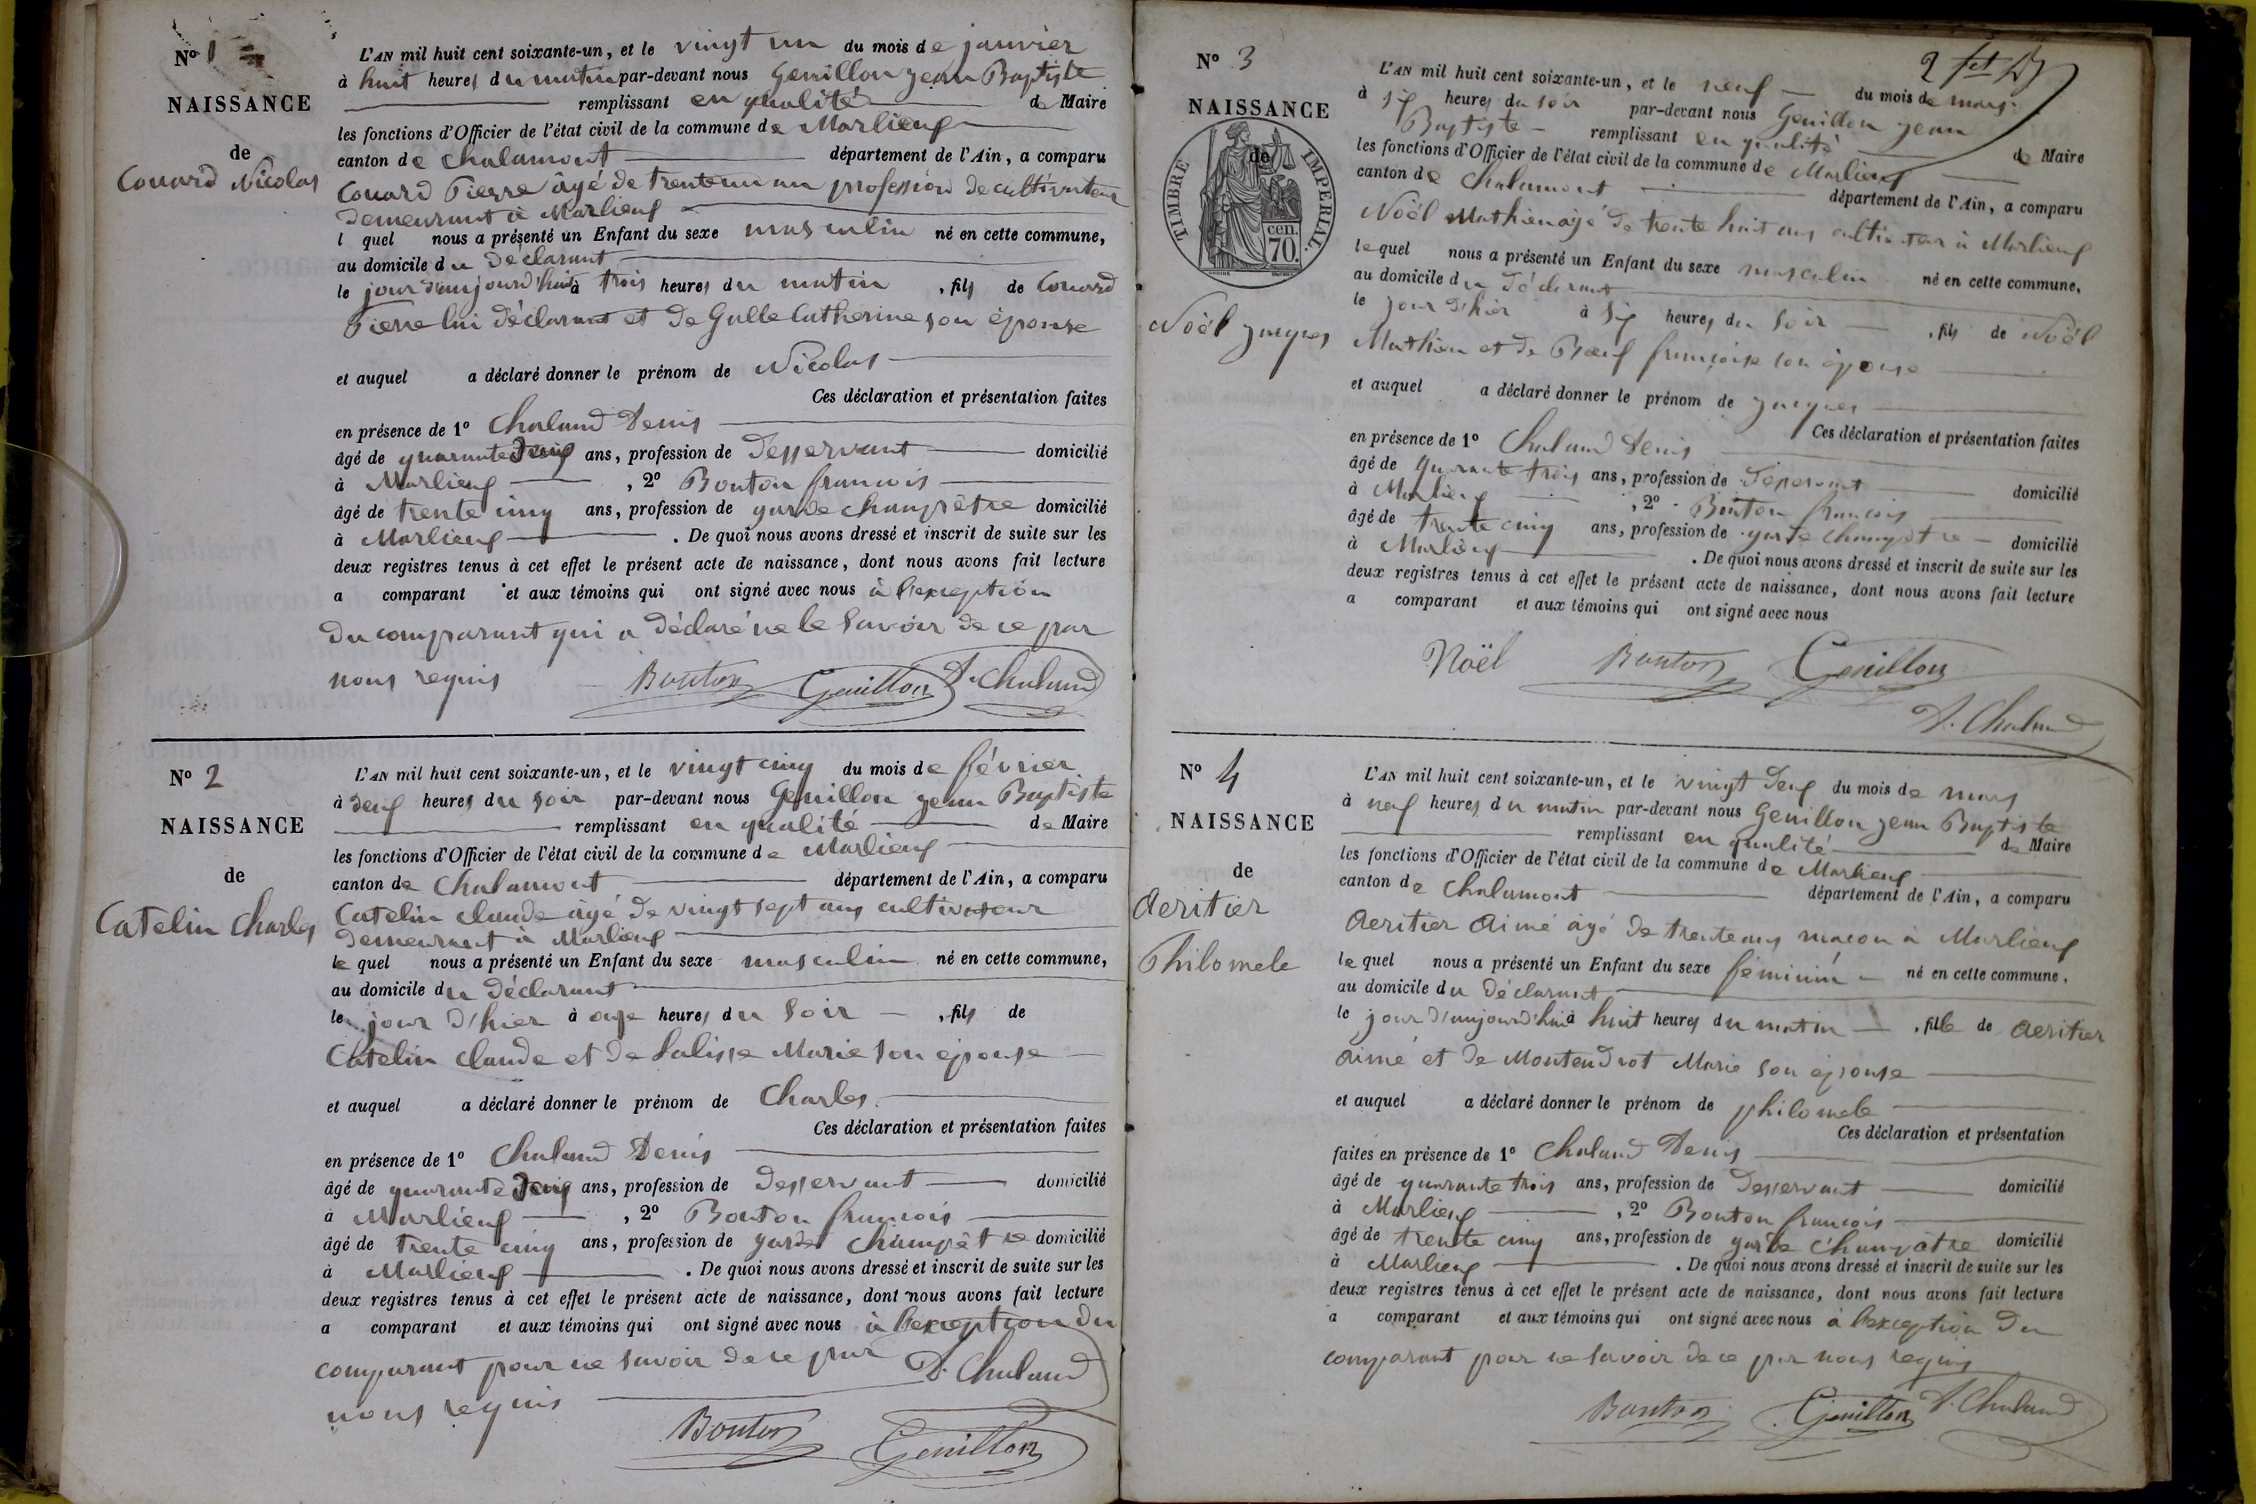 N° 1
NAISSANCE
de
Couard Nicolas
L'AN mil huit cent soixante-un, et le vingt un du mois de janvier
à huit heures du matin par-devant nous Genillon jean Baptiste
remplissant en qualité de Maire
les fonctions d'Officier de l'état civil de la commune de Marlieux
canton de Chalamont département de l'Ain, a comparu
Couard Pierre âgé de trente un an profession de cultivateur
demeurant à Marlieux
l quel nous a présenté un Enfant du sexe masculin né en cette commune,
au domicile du déclarant
le jour d'aujourd'hui à trois heures du matin, fils de Couard
Pierre lui déclarant et de Gulle Catherine son épouse
et auquel a déclaré donner le prénom de Nicolas
Ces déclaration et présentation faites
en présence de 1° Chaland Denis
âgé de quarante deux ans, profession de Desservant domicilié
à Marlieux, 2° Bouton francois
âgé de trente cinq ans, profession de garde champêtre domicilié
à Marlieux. De quoi nous avons dressé et inscrit de suite sur les
deux registres tenus à cet effet le présent acte de naissance, dont nous avons fait lecture
a comparant et aux témoins qui ont signé avec nous à l'exception
du comparant qui a déclaré ne le savoir de ce par
nous requis Bouton Genillon D. Chaland
N° 2
NAISSANCE
de
Catelin Charles
L'AN mil huit cent soixante-un, et le vingt cinq du mois de février
à deux heures du soir par-devant nous Genillon jean Baptiste
remplissant en qualité de Maire
les fonctions d'Officier de l'état civil de la commune de Marlieux
canton de Chalamont département de l'Ain, a comparu
Catelin claude âgé de vingt sept ans cultivateur
demeurant à Marlieux
le quel nous a présenté un Enfant du sexe masculin né en cette commune,
au domicile du déclarant
le jour d'hier à onze heures du soir, fils de
Catelin claude et de Salisse Marie son épouse
et auquel a déclaré donner le prénom de Charles
Ces déclaration et présentation faites
en présence de 1° Chaland Denis
âgé de quarante deux ans, profession de Desservant domicilié
à Marlieux, 2° Bouton francois
âgé de trente cinq ans, profession de garde champêtre domicilié
à Marlieux. De quoi nous avons dressé et inscrit de suite sur les
deux registres tenus à cet effet le présent acte de naissance, dont nous avons fait lecture
a comparant et aux témoins qui ont signé avec nous à l'exception du
comparant pour ne savoir de ce par D. Chaland
nous requis
Bouton Genillon
2
N° 3
NAISSANCE
de
TIMBRE IMPÉRIAL
70 cen.
Noël jacques
L'AN mil huit cent soixante-un, et le neuf du mois de mars
à six heures du soir par-devant nous Genillon jean
Baptiste remplissant en qualité de Maire
les fonctions d'Officier de l'état civil de la commune de Marlieux
canton de Chalamont département de l'Ain, a comparu
Noël Mathieu âgé de trente huit ans cultivateur à Marlieux
lequel nous a présenté un Enfant du sexe masculin né en cette commune,
au domicile du déclarant
le jour d'hier à six heures du soir, fils de Noël
Mathieu et de Bœuf françoise son épouse
et auquel a déclaré donner le prénom de jacques
Ces déclaration et présentation faites
en présence de 1° Chaland Denis
âgé de quarante trois ans, profession de Desservant domicilié
à Marlieux, 2° Bouton francois
âgé de trente cinq ans, profession de garde champêtre domicilié
à Marlieux. De quoi nous avons dressé et inscrit de suite sur les
deux registres tenus à cet effet le présent acte de naissance, dont nous avons fait lecture
a comparant et aux témoins qui ont signé avec nous
Noël Bouton Genillon
D. Chaland
N° 4
NAISSANCE
de
Aeritier
Philomele
L'AN mil huit cent soixante-un, et le vingt deux du mois de mars
à neuf heures du matin par-devant nous Genillon jean Baptiste
remplissant en qualité de Maire
les fonctions d'Officier de l'état civil de la commune de Marlieux
canton de Chalamont département de l'Ain, a comparu
Aeritier Aimé âgé de trente ans maçon à Marlieux
le quel nous a présenté un Enfant du sexe féminin né en cette commune.
au domicile du déclarant
le jour d'aujourd'hui à huit heures du matin, fille de Aeritier
Aimé et de Montendrot Marie son épouse
et auquel a déclaré donner le prénom de philomele
Ces déclaration et présentation
faites en présence de 1° Chaland Denis
âgé de quarante trois ans, profession de Desservant domicilié
à Marlieux, 2° Bouton francois
âgé de trente cinq ans, profession de garde champêtre domicilié
à Marlieux. De quoi nous avons dressé et inscrit de suite sur les
deux registres tenus à cet effet le présent acte de naissance, dont nous avons fait lecture
a comparant et aux témoins qui ont signé avec nous à l'exception du
comparant pour ne savoir de ce par nous requis
Bouton Genillon D. Chaland